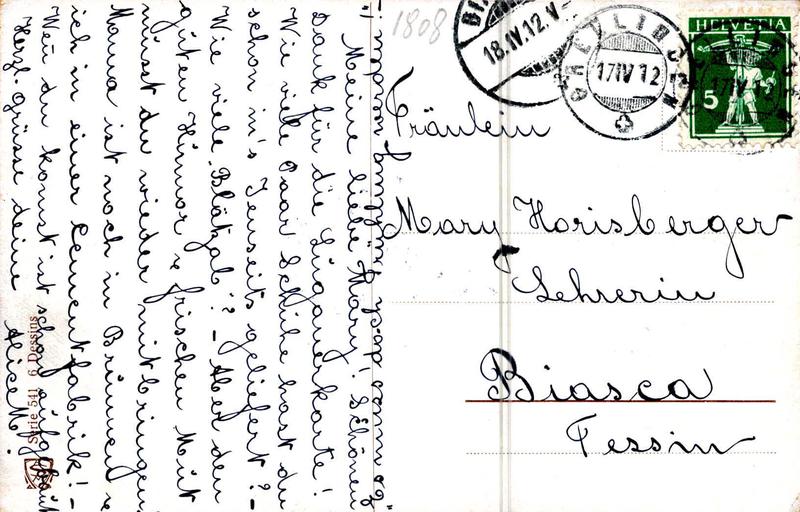 1808
BI
18.IV.12.V-
GACHLINGEN
17 IV 12
HELVETIA
5
17 IV 12
Fräulein
Mary Horisberger
Lehrerin
Biasca
Tessin
Meine liebe Mary! Schönen
Dank für die Luganerkarte!
Wie viele Paar Schühe hast du
schon in's Jenseits geliefert? -
Wie viele „Blätzab"? - Aber den
guten Humor & frischen Mut
müsst du wieder mitbringen
Manna ist noch in Brünnen &
ich in einer Cementfabrik! -
Wen du komst ist schon
Herzl. Grüsse deine Alice M.
Serie 541 6 Dessins